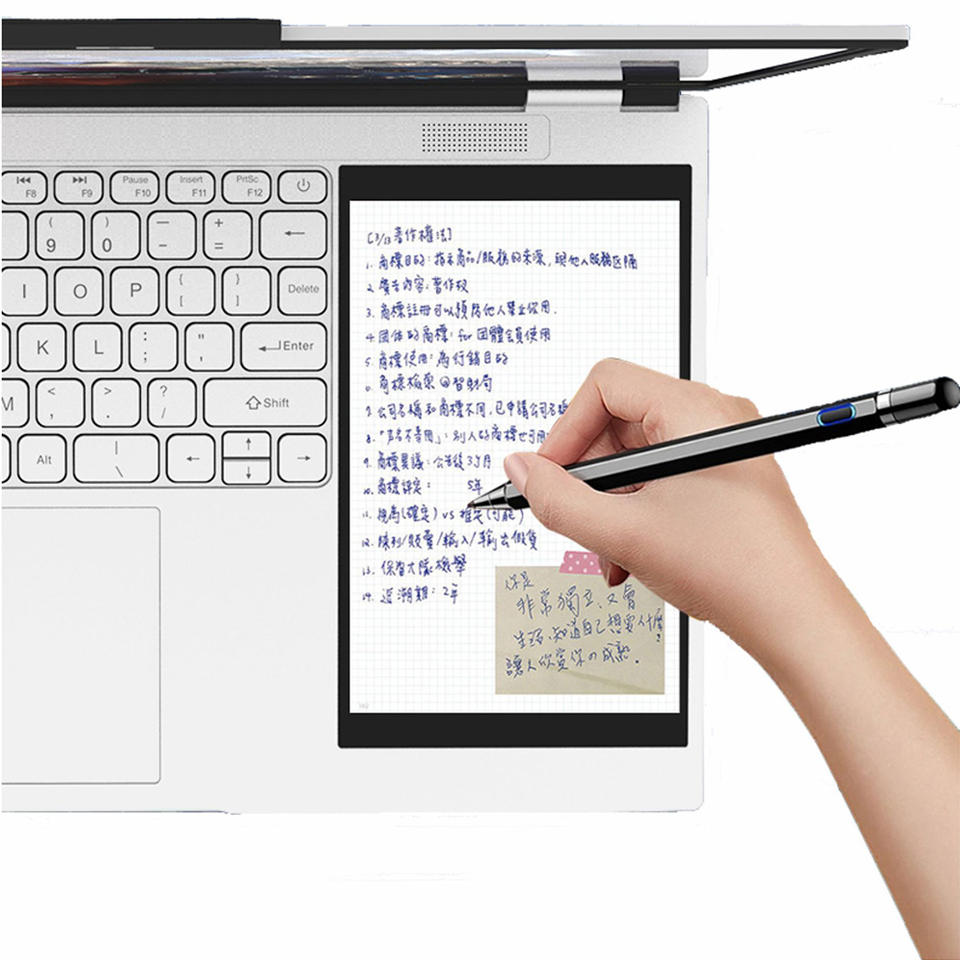 F8 F9 Pause F10 Insert F11 PrtSc F12
( 9 ) 0 — - + =
I O P { [ } ] Delete
K L : ; " , Enter
M < , > . ? / Shift
Alt | \
[3/13 著作權法]
1. 商標目的:指示商品/服務的來源,與他人服務區隔
2. 廣告內容:著作权
3. 商標註冊可以預防他人禁止使用.
4. 团体的商標: for 团體会員使用
5. 商標使用:為行銷目的
6. 商標檢索@智財局
7. 公司名稱和商標不同,已申請公司名稱
8. 「声名不專用」:別人的商標也可用
9. 商標異議:公告後3个月
10. 商標評定: 5年
11. 視為(確定) vs 推定(可能)
12. 陳列/販賣/輸入/輸出仿貨
13. 保智大隊 檢舉
14. 追溯期:2年
你是
非常獨立、又會
生活、知道自己想要什麼?
讓人欣賞你の成熟.